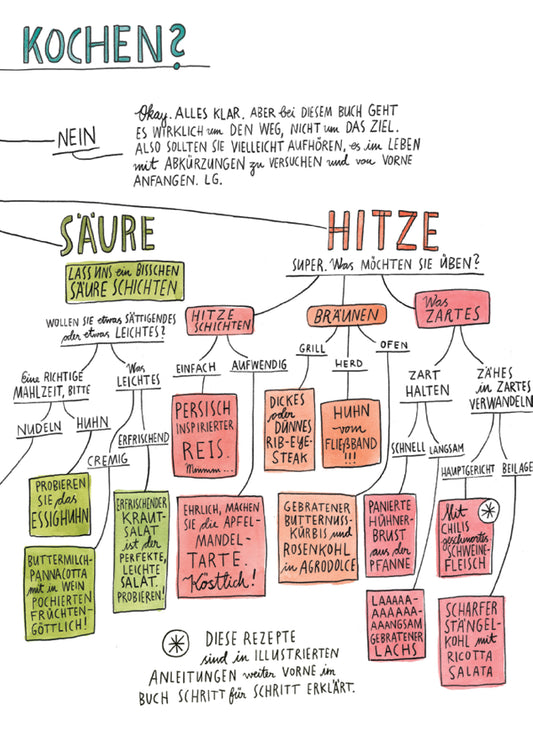 KOCHEN?
NEIN
Okay. ALLES KLAR. ABER bei DIESEM BUCH GEHT
ES WIRKLICH um DEN WEG, NICHT um DAS ZIEL.
ALSO SOLLTEN SIE VIELLEICHT AUFHÖREN, es im LEBEN
mit ABKÜRZUNGEN zu VERSUCHEN und von VORNE
ANFANGEN. LG.
SÄURE
LASS UNS ein BISSCHEN
SÄURE SCHICHTEN
WOLLEN SIE etwas SÄTTIGENDES
oder etwas LEICHTES?
Eine RICHTIGE
MAHLZEIT, BITTE
Was
LEICHTES
NUDELN
HUHN
CREMIG
ERFRISCHEND
PROBIEREN
SIE das
ESSIGHUHN
BUTTERMILCH-
PANNACOTTA
mit in WEIN
POCHIERTEN
FRÜCHTEN-
GÖTTLICH!
ERFRISCHENDER
KRAUT-
SALAT
ist der
PERFEKTE,
LEICHTE
SALAT.
PROBIEREN!
HITZE
SUPER. Was MÖCHTEN SIE ÜBEN?
HITZE
SCHICHTEN
EINFACH
AUFWENDIG
PERSISCH
INSPIRIERTER
REIS.
Mmmm...
EHRLICH, MACHEN
SIE die APFEL-
MANDEL-
TARTE.
Köstlich!
BRÄUNEN
GRILL
HERD
OFEN
DICKES
oder
DÜNNES
RIB-EYE-
STEAK
HUHN
vom
FLIEẞBAND
!!!
GEBRATENER
BUTTERNUSS-
KÜRBIS und
ROSENKOHL
in AGRODOLCE
Was
ZARTES
ZART
HALTEN
ZÄHES
in ZARTES
VERWANDELN
SCHNELL
LANGSAM
HAUPTGERICHT
BEILAGE
PANIERTE
HÜHNER-
BRUST
aus der
PFANNE
LAAAAA-
AAAAAA-
AAANGSAM
GEBRATENER
LACHS
Mit
CHILIS
geschmortes
SCHWEINE-
FLEISCH
SCHARFER
STÄNGEL-
KOHL mit
RICOTTA
SALATA
DIESE REZEPTE
sind in ILLUSTRIERTEN
ANLEITUNGEN weiter VORNE im
BUCH SCHRITT für SCHRITT ERKLÄRT.